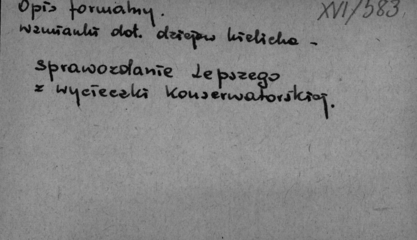 Opis formalny. XVI/583
wzmianki dot. dziejów kielicha -
sprawozdanie Lepszego
z wycieczki konserwatorskiej.